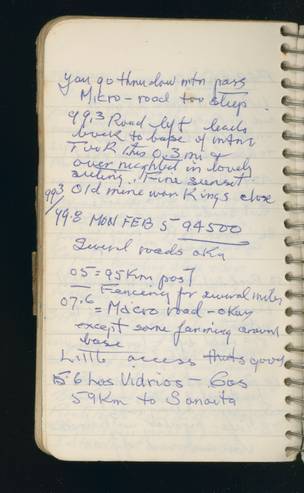 you go thru low mtn pass
Micro-road too steep.
99.3 Road left leads
back to base of mtns
Took this 0.3 mi &
over nighted in lovely
setting. Fine sunset.
99.3 Old mine workings close
99.8 MON FEB 5 94500
Several roads okay
05 = 95 Km post
Fencing for several miles
07.6 = Macro road - okay
except some farming around
base
Little access thats good
15.6 Los Vidrios - Gas
59 Km to Sonoita